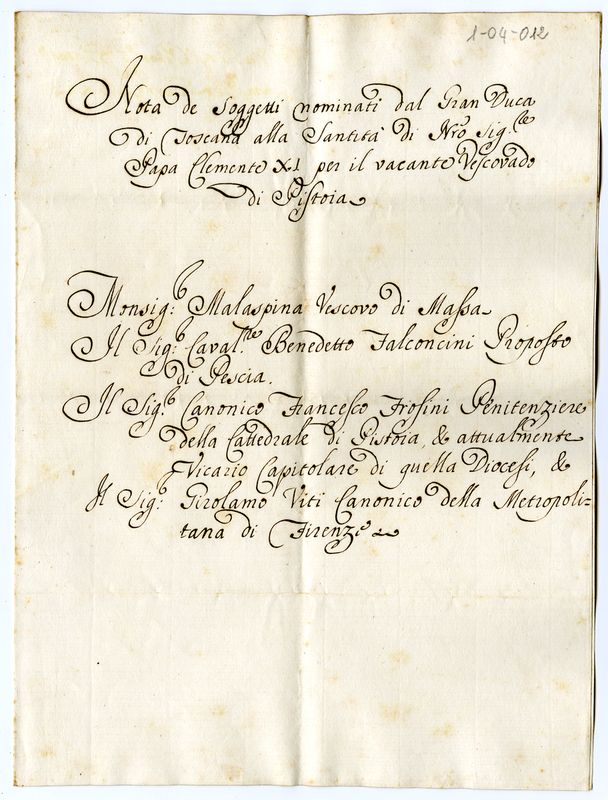 1-04-012
Nota de Soggetti nominati dal Gran Duca
di Toscana alla Santità di Nro Sig.re
Papa Clemente XI per il vacante Vescovado
di Pistoia
Monsig:r Malaspina Vescovo di Massa
Il Sig:r Caval.re Benedetto Falconcini Proposto
di Pescia.
Il Sig.r Canonico Francesco Frosini Penitenziere
della Cattedrale di Pistoia, & attualmente
Vicario Capitolare di quella Diocesi, &
Il Sig:r Girolamo Viti Canonico della Metropoli=
tana di Firenze